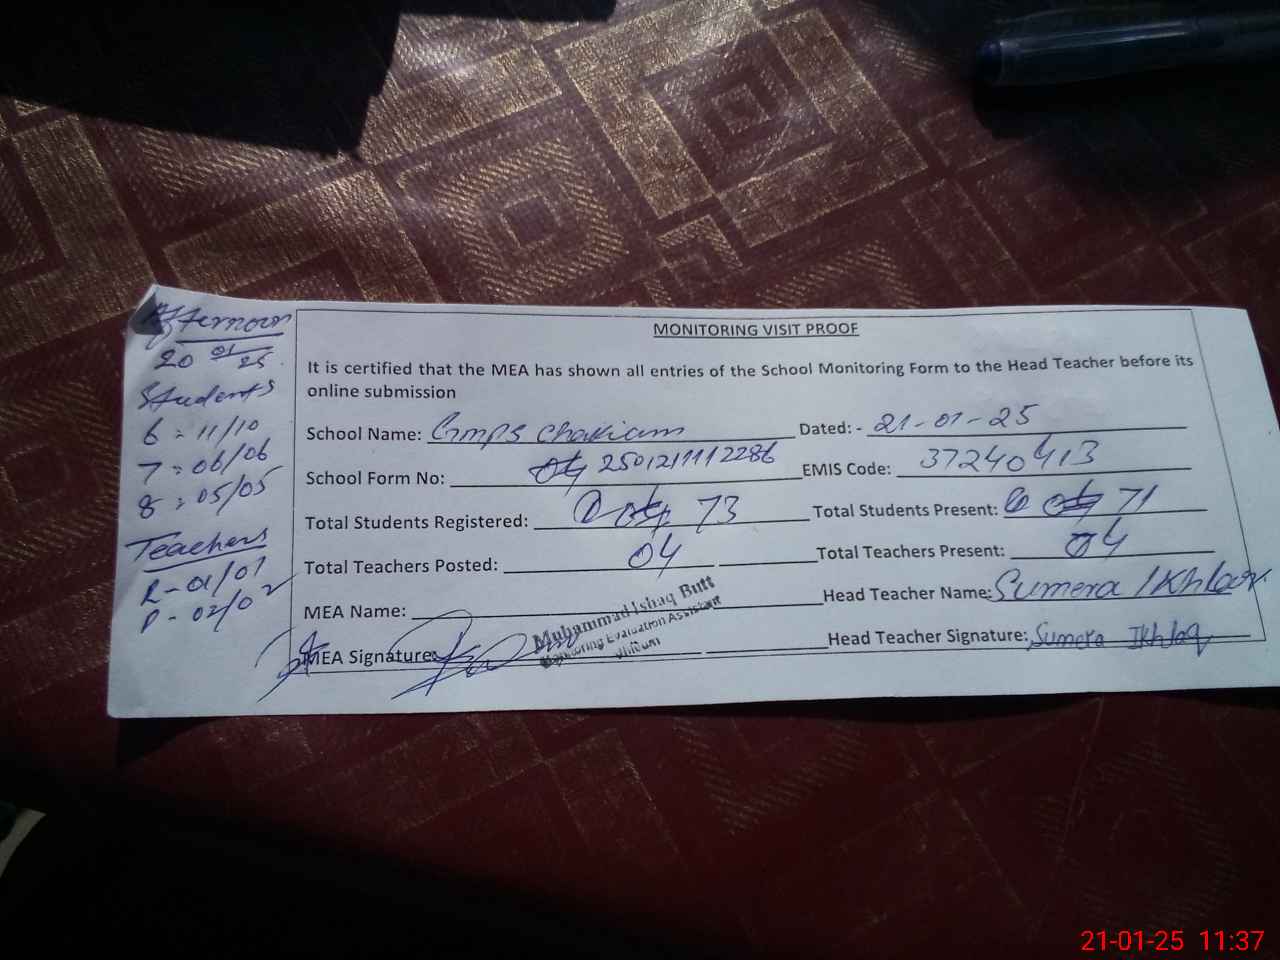 Afternoon
20 01/25
Students
6 = 11/10
7 = 06/06
8 = 05/05
Teachers
R - 01/01
P - 02/02
MONITORING VISIT PROOF
It is certified that the MEA has shown all entries of the School Monitoring Form to the Head Teacher before its
online submission
School Name: GMPS Chakiam Dated: - 21-01-25
School Form No: 2501211112286 EMIS Code: 37240413
Total Students Registered: 73 Total Students Present: 71
Total Teachers Posted: 04 Total Teachers Present: 04
MEA Name: Head Teacher Name: Sumera Ikhlaq
Muhammad Ishaq Butt
Monitoring Evaluation Assistant
Jhelum
MEA Signature: Head Teacher Signature: Sumera Ikhlaq
21-01-25 11:37